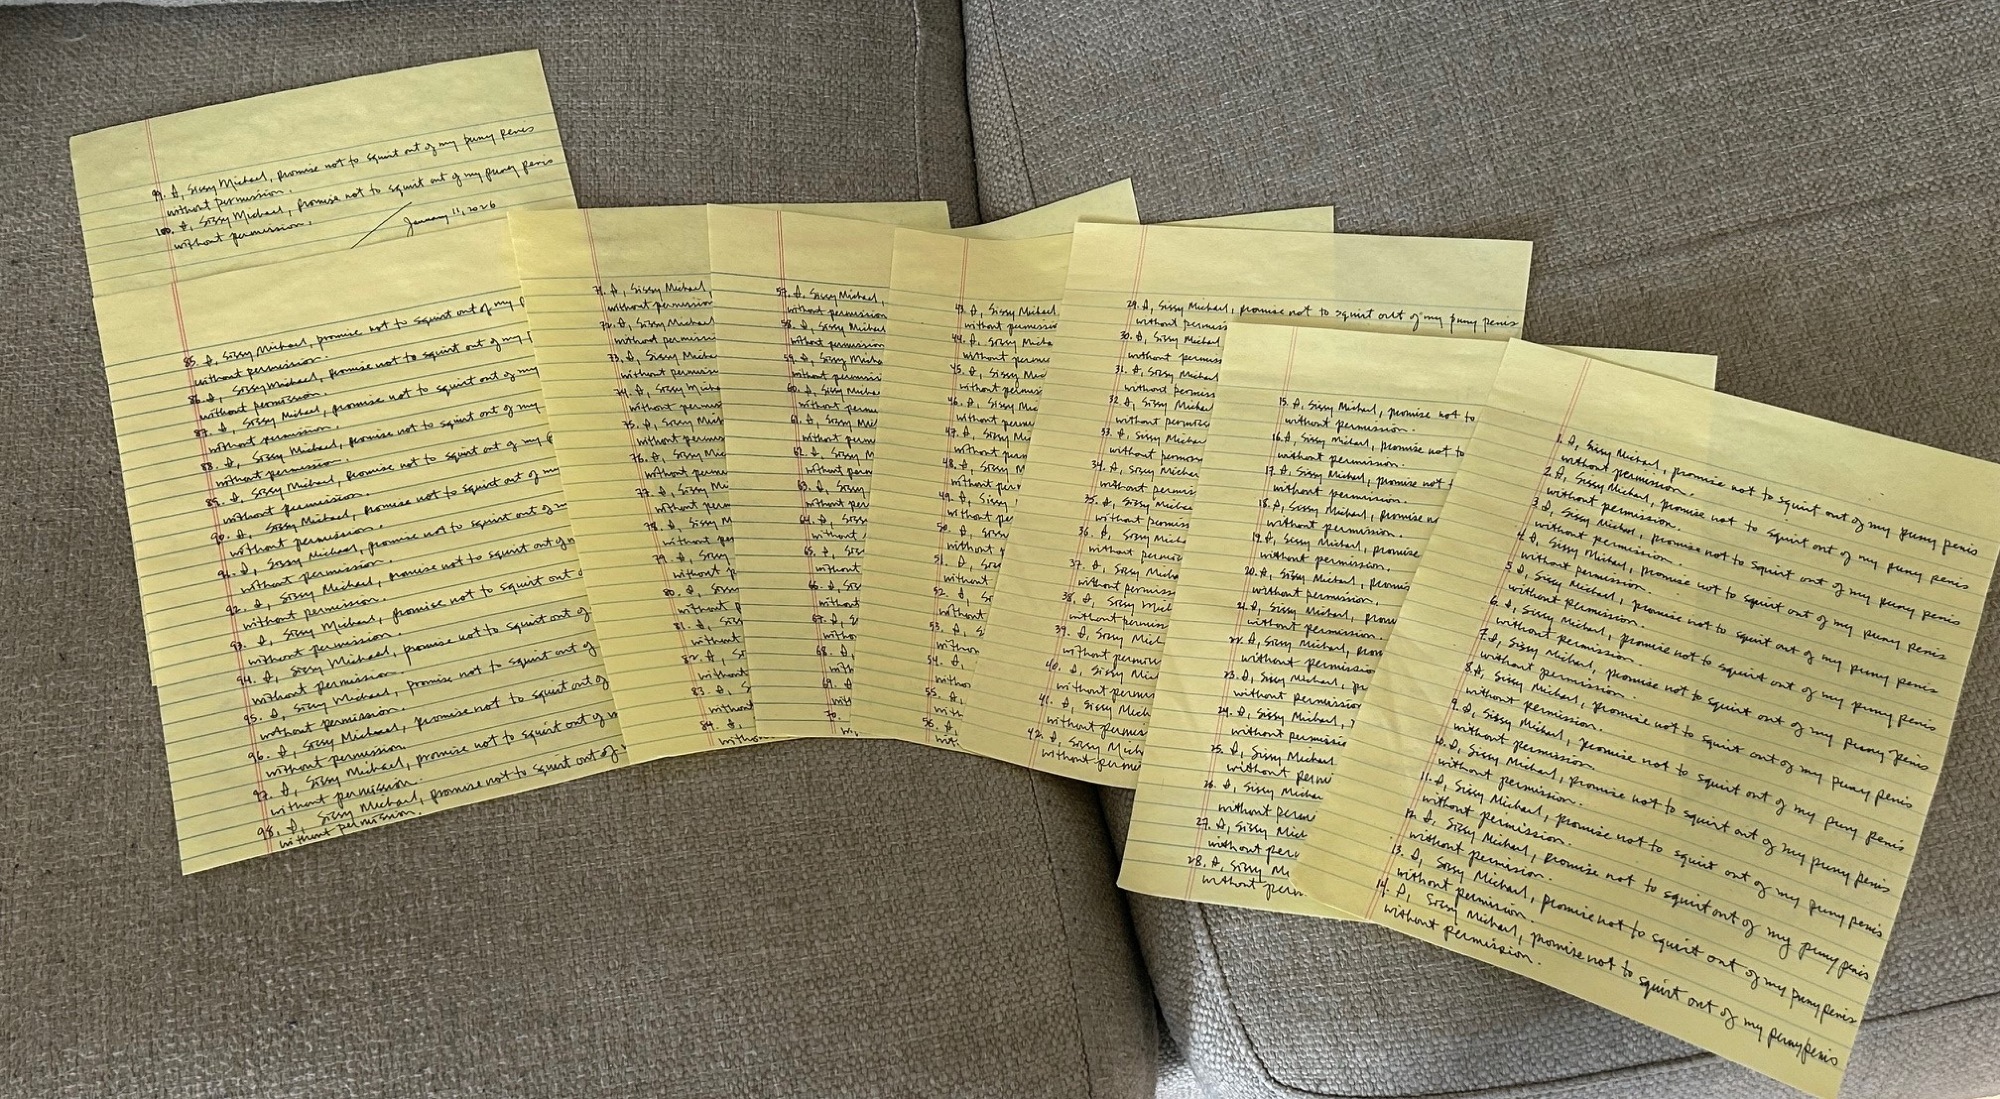 99. I, Sissy Michael, promise not to squirt out of my puny penis
without permission.
100. I, Sissy Michael, promise not to squirt out of my puny penis
without permission.
January 11, 2026
85. I, Sissy Michael, promise not to squirt out of my
without permission.
86. I, Sissy Michael, promise not to squirt out of my
without permission.
87. I, Sissy Michael, promise not to squirt out of my
without permission.
88. I, Sissy Michael, promise not to squirt out of my
without permission.
89. I, Sissy Michael, promise not to squirt out of my
without permission.
90. I, Sissy Michael, promise not to squirt out of my
without permission.
91. I, Sissy Michael, promise not to squirt out of
without permission.
92. I, Sissy Michael, promise not to squirt out of
without permission.
93. I, Sissy Michael, promise not to squirt out of
without permission.
94. I, Sissy Michael, promise not to squirt out of
without permission.
95. I, Sissy Michael, promise not to squirt out of
without permission.
96. I, Sissy Michael, promise not to squirt out of
without permission.
97. I, Sissy Michael, promise not to squirt out of
without permission.
98. I, Sissy Michael, promise not to squirt out of
without permission.
71. I, Sissy Michael,
without permission
72. I, Sissy Michael
without permission
73. I, Sissy
without
74. I, Sissy
without
75. I, Sissy
without
76. I, Sissy
without
77. I, Sissy
without
78. I, Sissy
without
79. I, Sissy
without
80. I,
without
81. I,
without
82. I,
without
83. I,
without
84. I,
without
57. I, Sissy Michael,
without permission
58. I, Sissy Michael
without permission
59. I, Sissy
without
60. I, Sissy
without
61. I, Sissy
without
62. I, Sissy
without
63. I, Sissy
without
64. I,
without
65. I,
without
66. I,
without
67. I,
68. I,
69. I,
70.
43. I, Sissy Michael
without
44. I, Sissy
without
45. I, Sissy
without
46. I, Sissy
without
47. I, Sissy
without
48. I, Sissy
without
49. I, Sissy
without
50. I,
without
51. I,
without
52. I,
without
53. I,
54. I,
55. I,
56. I,
29. I, Sissy Michael, promise not to squirt out of my puny penis
without
30. I, Sissy Michael
without
31. I, Sissy
without
32. I, Sissy
without
33. I, Sissy
without
34. I, Sissy
without
35. I, Sissy
without
36. I, Sissy
without
37. I, Sissy
without
38. I, Sissy
without
39. I, Sissy
without
40. I, Sissy
without
41. I, Sissy
without
42. I, Sissy
without
15. I, Sissy Michael, promise not to
without permission.
16. I, Sissy Michael, promise not to
without permission.
17. I, Sissy Michael, promise not
without permission.
18. I, Sissy Michael, promise
without permission.
19. I, Sissy Michael, promise
without permission.
20. I, Sissy Michael,
without permission.
21. I, Sissy Michael,
without permission.
22. I, Sissy Michael,
without permission
23. I, Sissy Michael,
without permission
24. I, Sissy Michael,
without
25. I, Sissy Michael
without
26. I, Sissy
without
27. I, Sissy
without
28. I, Sissy
without
1. I, Sissy Michael, promise not to squirt out of my puny penis
without permission.
2. I, Sissy Michael, promise not to squirt out of my puny penis
without permission.
3. I, Sissy Michael, promise not to squirt out of my puny penis
without permission.
4. I, Sissy Michael, promise not to squirt out of my puny penis
without permission.
5. I, Sissy Michael, promise not to squirt out of my puny penis
without permission.
6. I, Sissy Michael, promise not to squirt out of my puny penis
without permission.
7. I, Sissy Michael, promise not to squirt out of my puny penis
without permission.
8. I, Sissy Michael, promise not to squirt out of my puny penis
without permission.
9. I, Sissy Michael, promise not to squirt out of my puny penis
without permission.
10. I, Sissy Michael, promise not to squirt out of my puny penis
without permission.
11. I, Sissy Michael, promise not to squirt out of my puny penis
without permission.
12. I, Sissy Michael, promise not to squirt out of my puny penis
without permission.
13. I, Sissy Michael, promise not to squirt out of my puny penis
without permission.
14. I, Sissy Michael, promise not to squirt out of my puny penis
without permission.